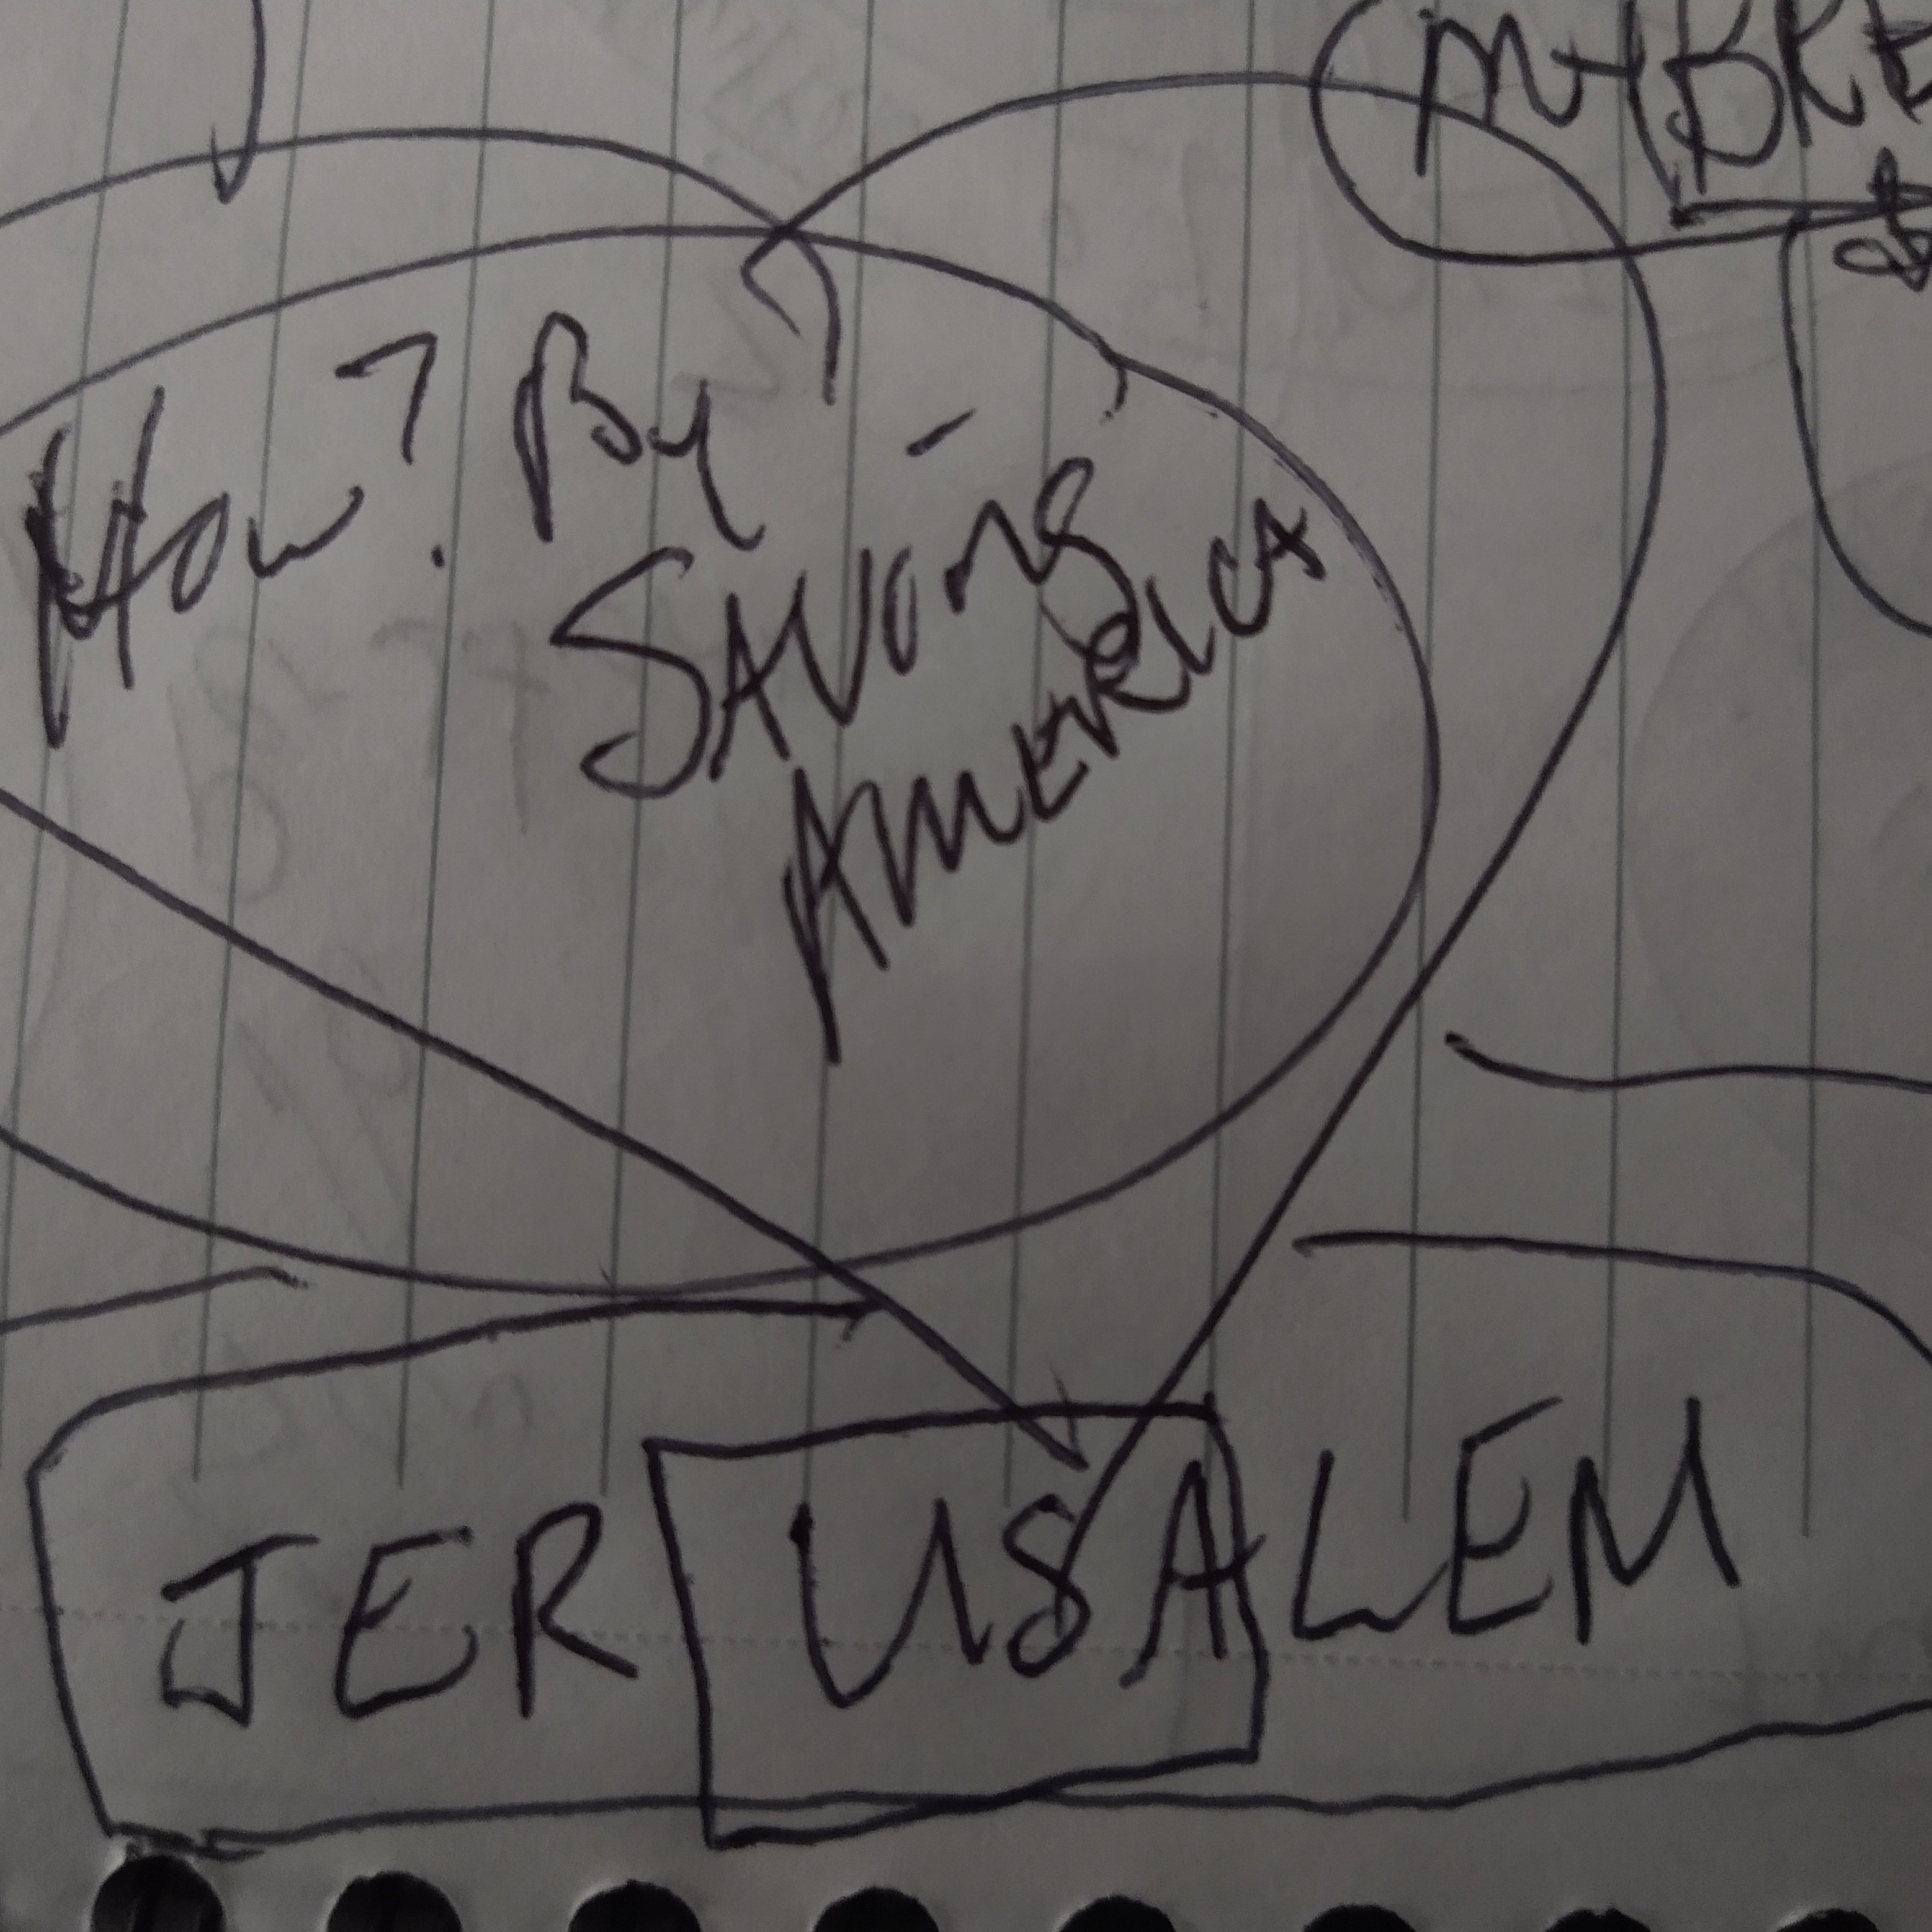 How? By
Saving
America
JERUSALEM